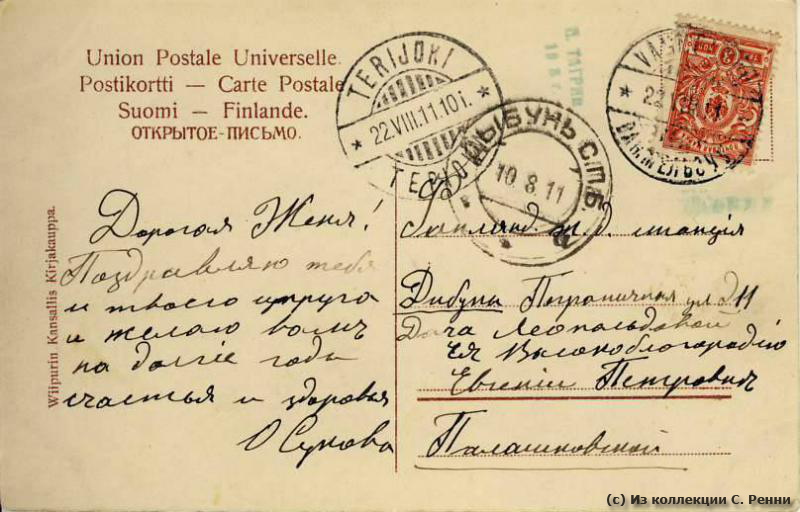 Union Postale Universelle.
Postikortti — Carte Postale
Suomi — Finlande.
ОТКРЫТОЕ-ПИСЬМО.
Wiipurin Kansallis Kirjakauppa.
TERIJOKI
* 22.VIII.11.10 i. *
TERIJOKI
ДЫБУНЬ СПБ.
10.8.11
22
Дорогая Женя!
Поздравляю тебя
и твоего супруга
и желаю вамъ
на долгіе годы
счастья и здоровья
О Сукова
Финлянд. ж. д. станція
Дибуны Пограничная ул Д 11
Дача Леопольдовой
Ея Высокоблагородію
Евгеніи Петровнѣ
Палашковской
(c) Из коллекции С. Ренни